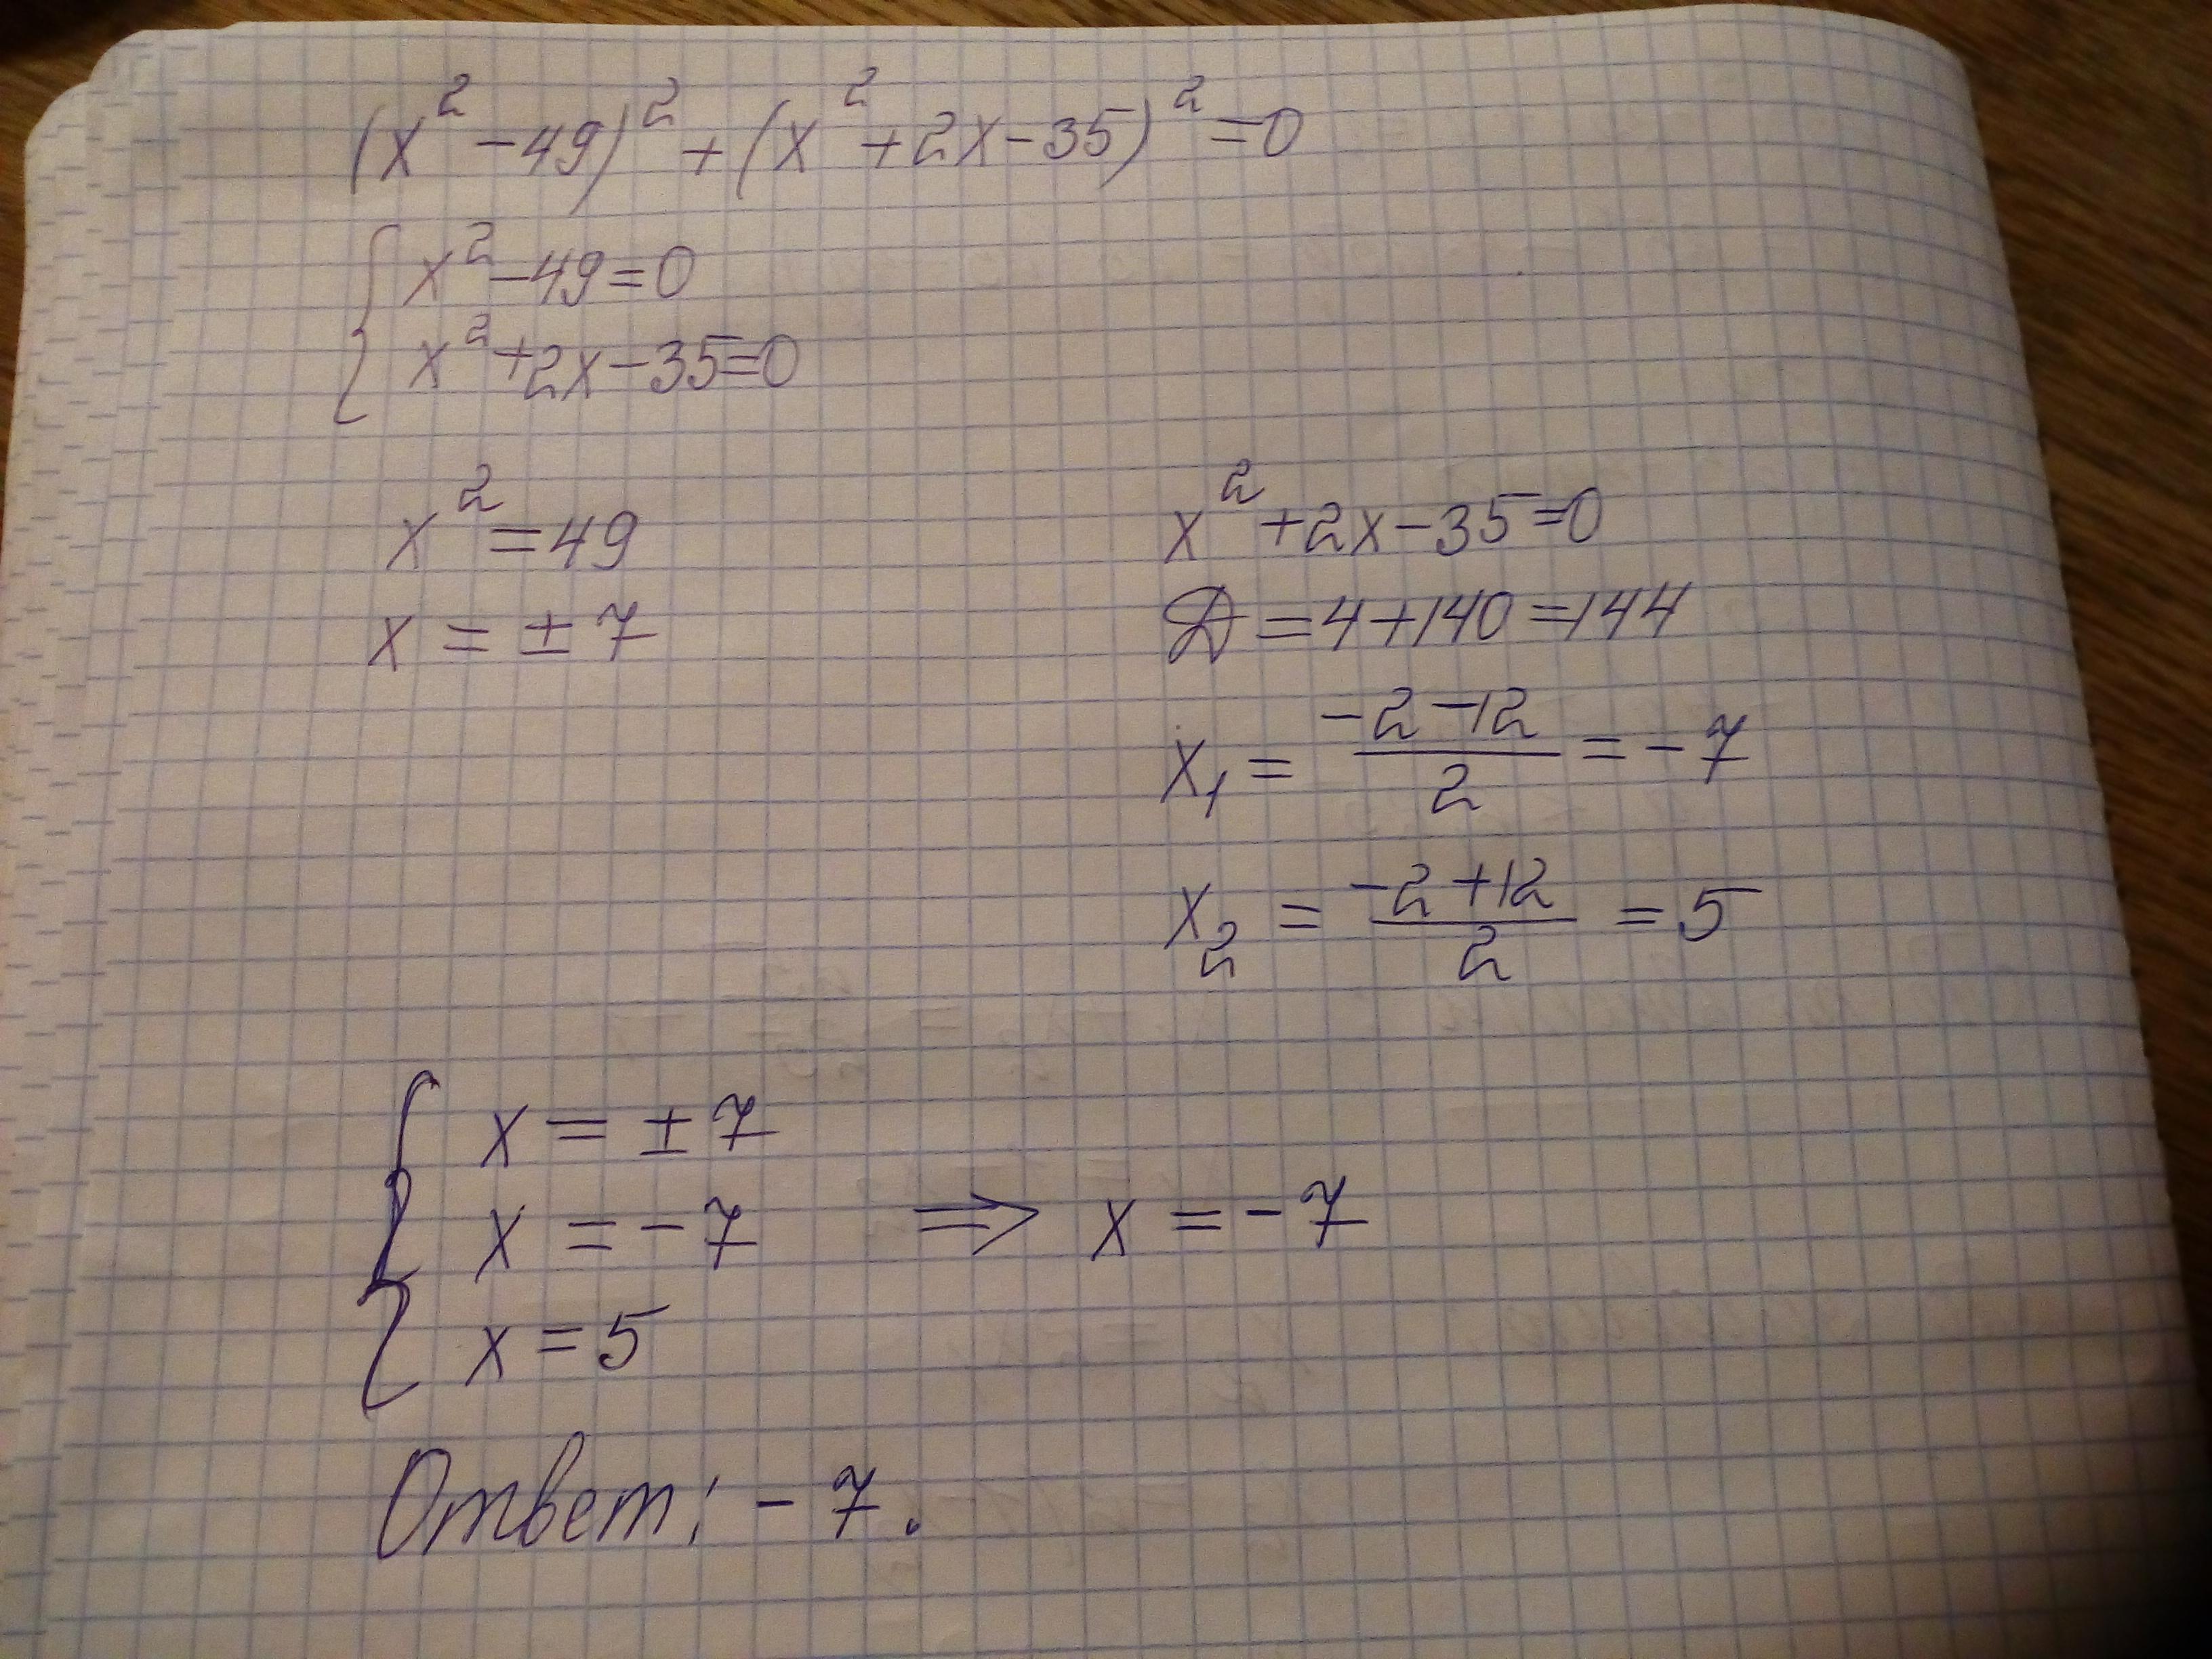 (x² - 49)² + (x² + 2x - 35)² = 0
{ x² - 49 = 0
x² + 2x - 35 = 0
x² = 49
x = ± 7
x² + 2x - 35 = 0
Д = 4 + 140 = 144
x₁ = (-2 - 12)/2 = -7
x₂ = (-2 + 12)/2 = 5
{ x = ± 7
x = -7 ⇒ x = -7
x = 5
Ответ: -7.